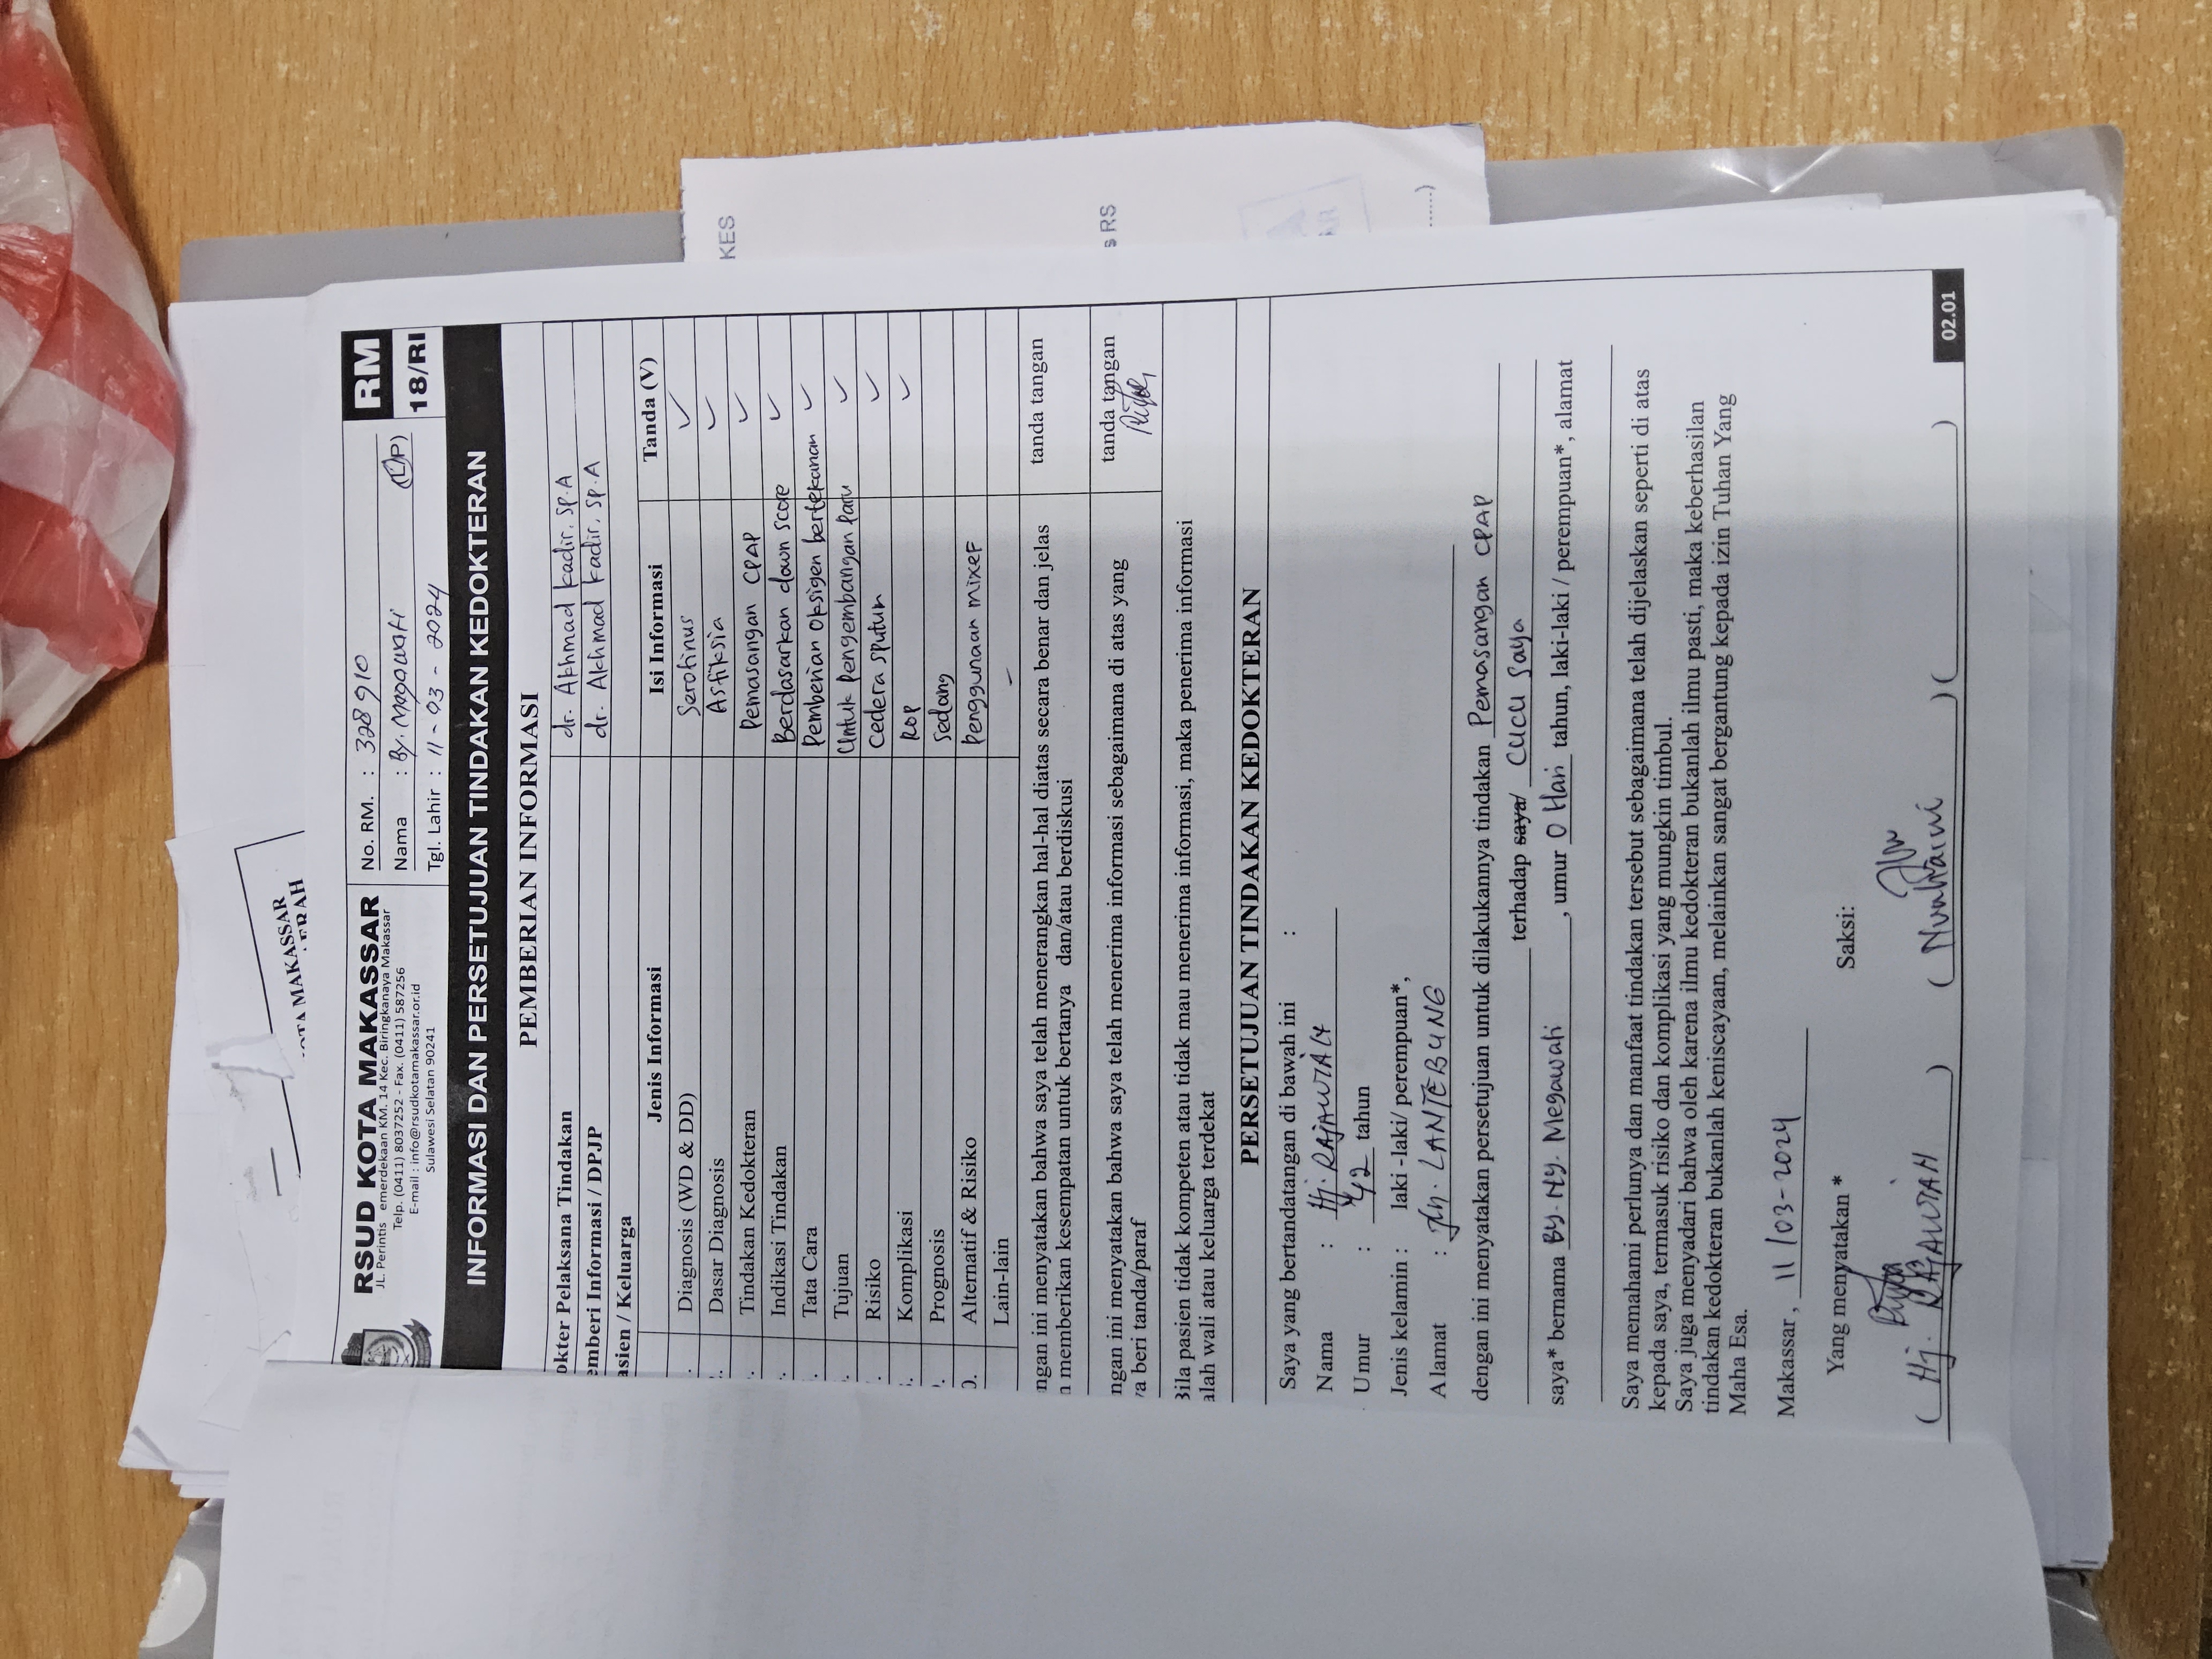 OTA MAKASSAR
ERAH
RSUD KOTA MAKASSAR
JL. Perintis emerdekaan KM. 14 Kec. Biringkanaya Makassar
Telp. (0411) 8037252 - Fax. (0411) 587256
E-mail : info@rsudkotamakassar.or.id
Sulawesi Selatan 90241
No. RM. : 328910
Nama : By. Megawati (L/P)
Tgl. Lahir : 11-03-2024
RM
18/RI
INFORMASI DAN PERSETUJUAN TINDAKAN KEDOKTERAN
PEMBERIAN INFORMASI
okter Pelaksana Tindakan dr. Akhmad kadir. Sp.A
emberi Informasi / DPJP dr. Akhmad kadir. Sp.A
asien / Keluarga
Jenis Informasi Isi Informasi Tanda (V)
. Diagnosis (WD & DD) Serotinus ✓
. Dasar Diagnosis Asfiksia ✓
. Tindakan Kedokteran Pemasangan CPAP ✓
. Indikasi Tindakan Berdasarkan down score ✓
. Tata Cara Pemberian oksigen bertekanan ✓
. Tujuan Untuk pengembangan paru ✓
. Risiko Cedera sputum ✓
. Komplikasi ROP ✓
. Prognosis Sedang
0. Alternatif & Risiko Penggunaan mixef
Lain-lain -
ngan ini menyatakan bahwa saya telah menerangkan hal-hal diatas secara benar dan jelas tanda tangan
n memberikan kesempatan untuk bertanya dan/atau berdiskusi
ngan ini menyatakan bahwa saya telah menerima informasi sebagaimana di atas yang tanda tangan
a beri tanda/paraf
Bila pasien tidak kompeten atau tidak mau menerima informasi, maka penerima informasi
alah wali atau keluarga terdekat
PERSETUJUAN TINDAKAN KEDOKTERAN
Saya yang bertandatangan di bawah ini :
Nama : Hj. RAJAWIAH
Umur : 42 tahun
Jenis kelamin : laki -laki/ perempuan*,
Alamat : Jln. LANTEBUNG
dengan ini menyatakan persetujuan untuk dilakukannya tindakan Pemasangan CPAP
terhadap saya/ Cucu saya
saya* bernama BY. NY. Megawati, umur 0 Hari tahun, laki-laki / perempuan*, alamat
Saya memahami perlunya dan manfaat tindakan tersebut sebagaimana telah dijelaskan seperti di atas
kepada saya, termasuk risiko dan komplikasi yang mungkin timbul.
Saya juga menyadari bahwa oleh karena ilmu kedokteran bukanlah ilmu pasti, maka keberhasilan
tindakan kedokteran bukanlah keniscayaan, melainkan sangat bergantung kepada izin Tuhan Yang
Maha Esa.
Makassar, 11/03-2024
Yang menyatakan * Saksi:
( Hj. RAJAWIAH ) ( ) ( )
02.01
KES
s RS
......)